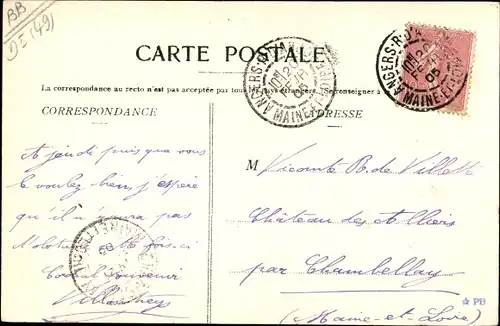 BB
DI (49)
CARTE POSTALE
La correspondance au recto n'est pas acceptée par tous les pays étrangers. Se renseigner à
CORRESPONDANCE
ADRESSE
ANGERS-R.D'A
MAINE-ET-LOIRE
A jeudi puis que vous
le voulez bien, j'espère
qu'il n'y aura pas
cette fois-ci
Cordial souvenir
M Vicomte B. de Villette
Château des Alliers
par Chambellay
(Maine-et-Loire)
PB